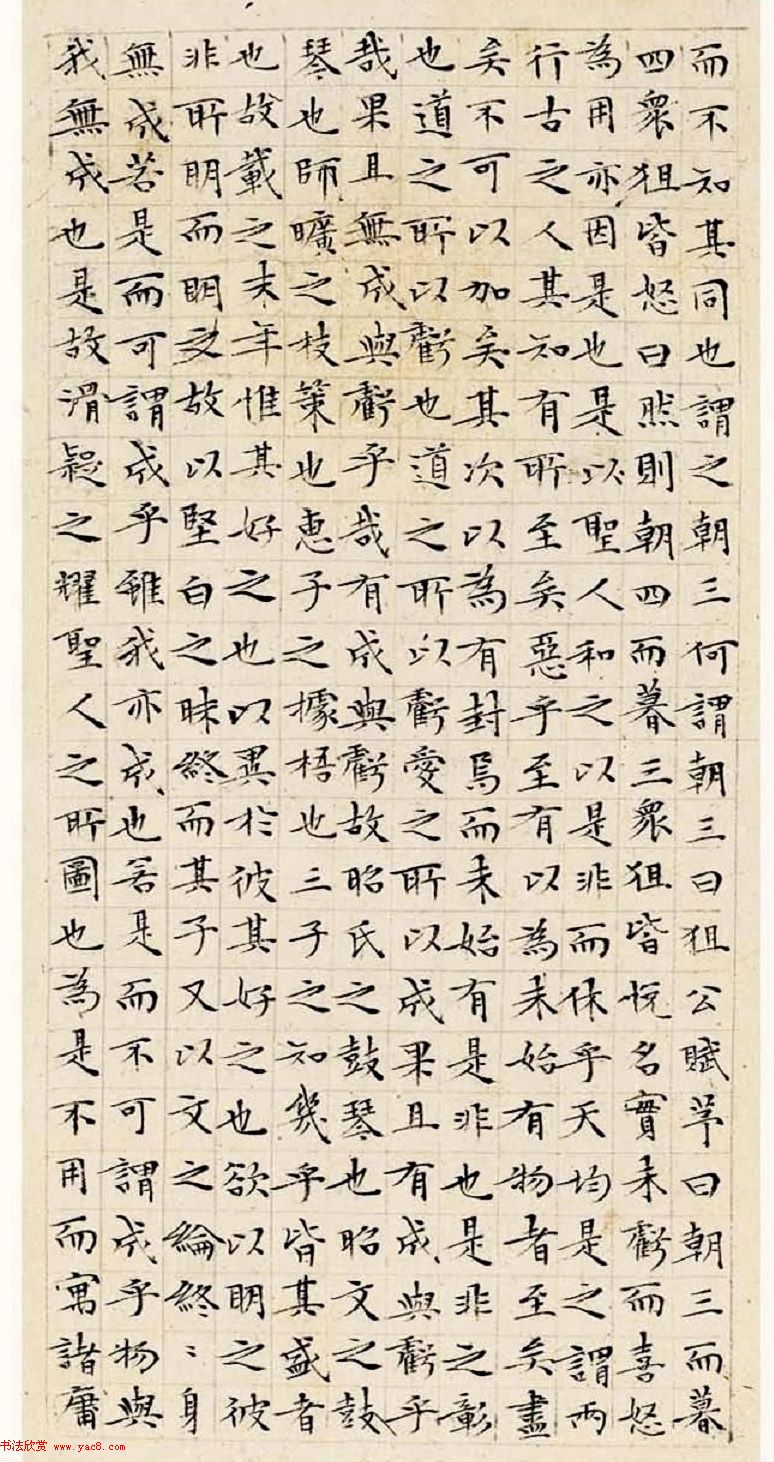 而不知其同也謂之朝三何謂朝三曰狙公賦芧曰朝三而暮
四眾狙皆怒曰然則朝四而暮三眾狙皆悅名實未虧而喜怒
為用亦因是也是以聖人和之以是非而休乎天均是之謂兩
行古之人其知有所至矣惡乎至有以為未始有物者至矣盡
矣不可以加矣其次以為有封焉而未始有是非也是非之彰
也道之所以虧也道之所以虧愛之所以成果且有成與虧乎
哉果且無成與虧乎哉有成與虧故昭氏之鼓琴也昭文之鼓
琴也師曠之枝策也惠子之據梧也三子之知幾乎皆其盛者
也故載之末年惟其好之也以異於彼其好之也欲以明之彼
非所明而明之故以堅白之昧終而其子又以文之綸終〻身
無成若是而可謂成乎雖我亦成也若是而不可謂成乎物與
我無成也是故滑疑之耀聖人之所圖也為是不用而寓諸庸
书法欣赏 www.yac8.com